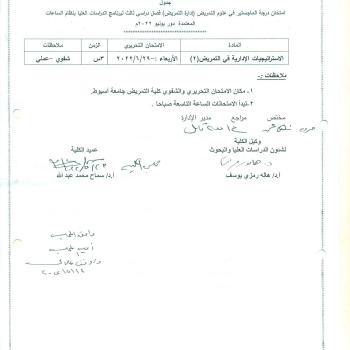 جدول
امتحان درجة الماجستير في علوم التمريض (إدارة التمريض) فصل دراسى ثالث لبرنامج الدراسات العليا بنظام الساعات
المعتمدة دور يونيو ٢٠٢٢م
المادة الامتحان التحريري الزمن ملاحظات
الاستراتيجيات الإدارية في التمريض(٢) الأربعاء :- ٢٠٢٢/٦/٢٩ ٣س شفوي -عملي
ملاحظات :-
١- مكان الامتحان التحريري والشفوي كلية التمريض جامعة أسيوط.
٢-تبدأ الامتحانات الساعة التاسعة صباحا .
مختص مراجع مدير الإدارة
وكيل الكلية
لشئون الدراسات العليا والبحوث عميد الكلية
أ.د/ هاله رمزي يوسف أ.د/ سماح محمد عبد الله